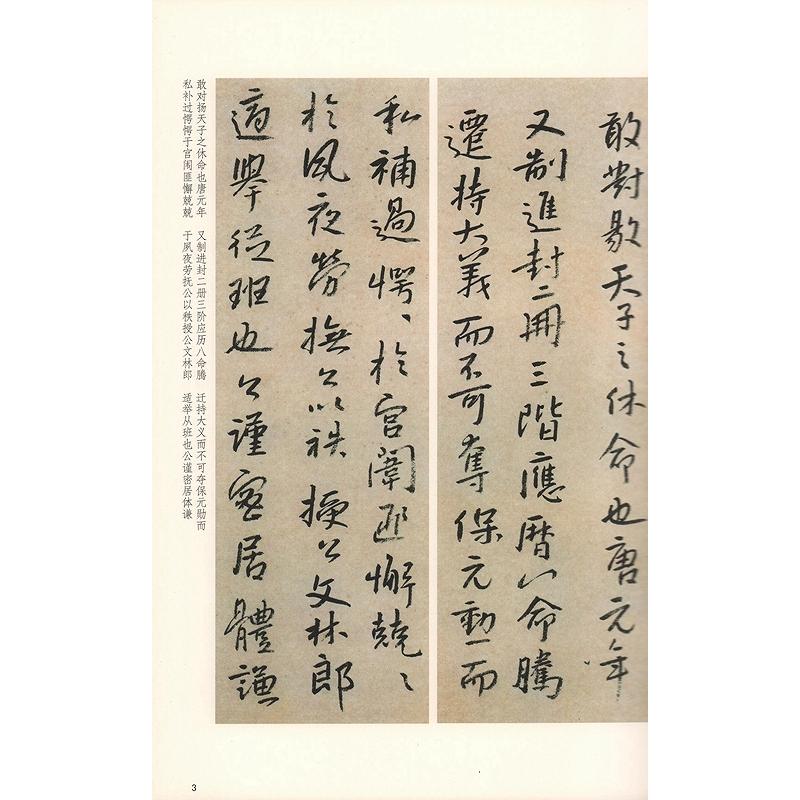 敢對敭天子之休命也唐元年
又制進封二冊三階應曆八命騰
遷持大義而不可奪保元勳而
私補過愕〻於宮闈匪懈兢〻
於夙夜勞撫公以袟授公文林郎
適舉從班也公謹密居體謙
敢对扬天子之休命也唐元年　又制进封二册三阶应历八命腾　迁持大义而不可夺保元勋而
私补过愕愕于宫闱匪懈兢兢　于夙夜劳抚公以秩授公文林郎　适举从班也公谨密居体谦
3